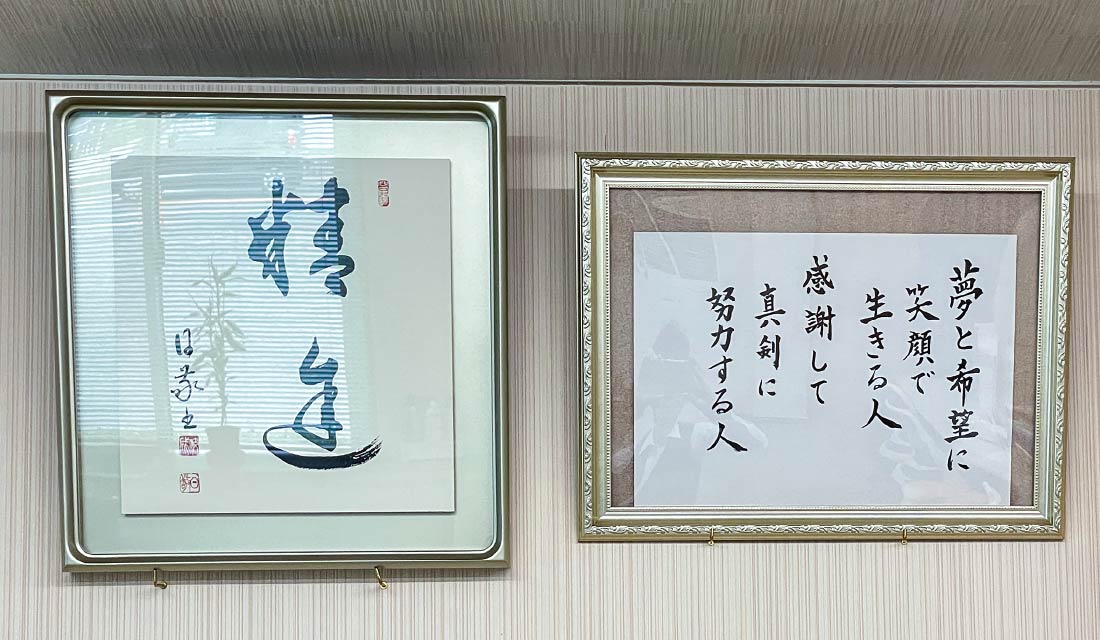 精進
夢と希望に
笑顔で
生きる人
感謝して
真剣に
努力する人